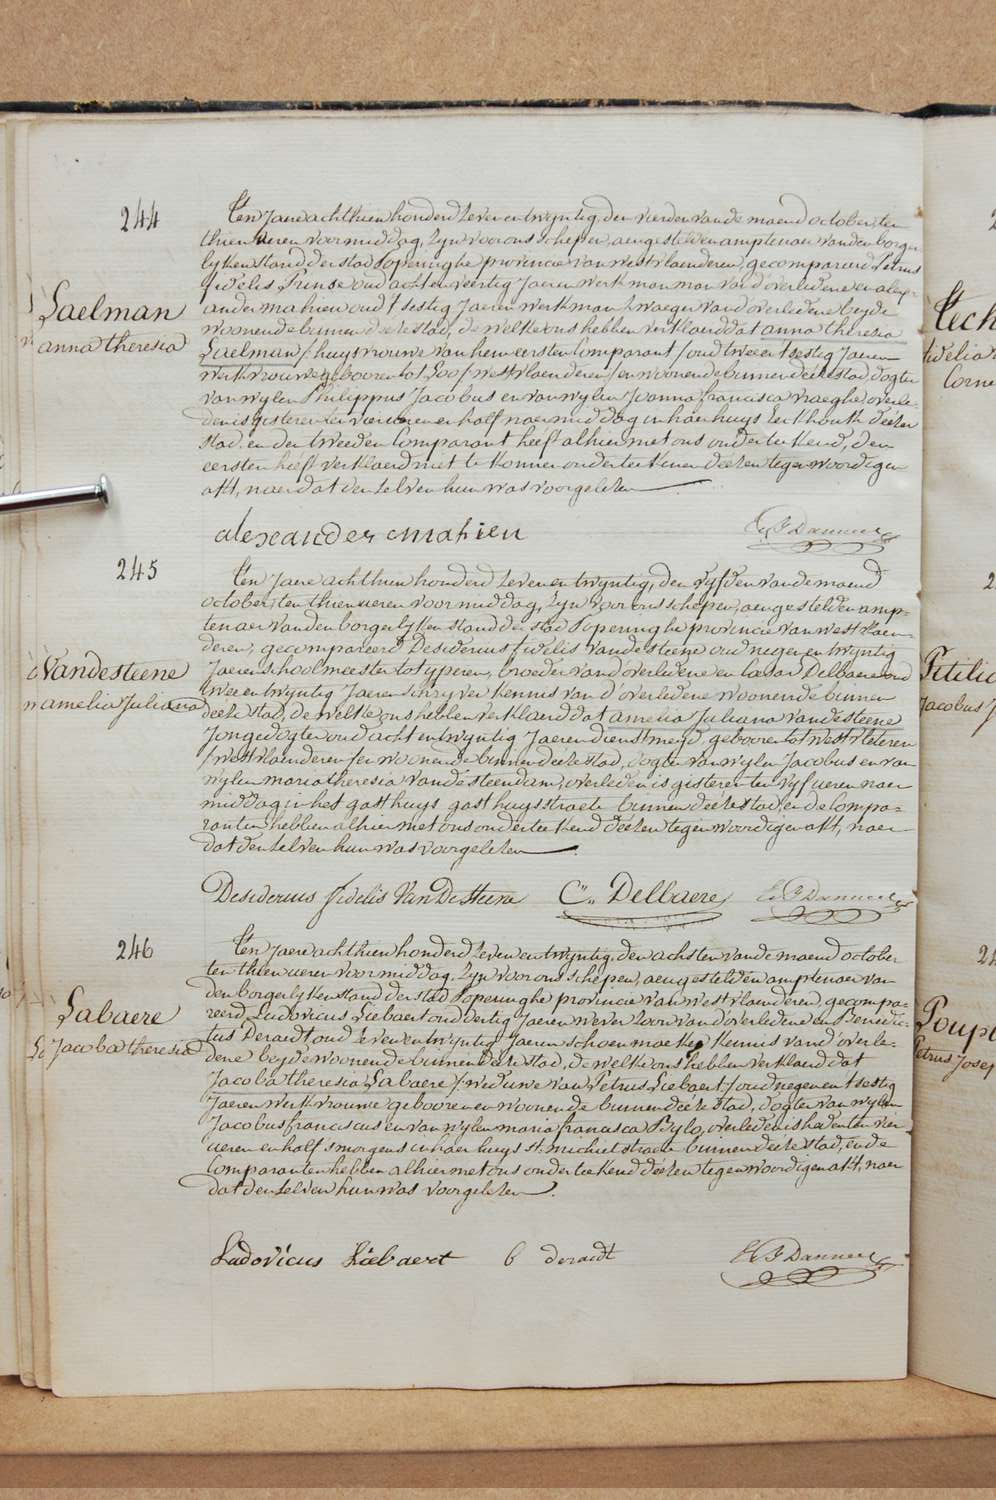 244
Laelman
anna theresia
Ten Jaere achthien honderd zeven en twyntig, den vierden van de maend october, ten
thien ueren voormiddag, zyn voor ons schepen, aengestelden amptenaer van den borger-
lyken stand der stad Poperinghe provincie van westvlaenderen, gecompareerd Petrus
fidelis Prinse oud achtenveertig Jaeren werkman man van d'overledene en alex-
ander mahieu oud t'sestig Jaeren werkman zwaeger van d'overledene beyde
woonende binnen deeze stad, de welke ons hebben verklaerd dat anna theresia
Laelman /huysvrouwe van hem eersten Comparant/ oud twee en t'sestig Jaeren
werkvrouwe gebooren tot Loo /westvlaenderen/ en woonende binnen deeze stad, dogter
van wylen Philippus Jacobus en van wylen Joanna francisca vraeghe, overle-
den is gisteren ten vier ueren en half naermiddag in haer huys Eekhoutk deezer
stad, en den tweeden Comparant heeft alhier met ons onderteekend, den
eersten heeft verklaerd niet te konnen onderteekenen deezen tegenwoordigen
akt, naer dat den zelven hun was voorgelezen
alexander mahieu
245
Vandesteene
amelia Juliana
Ten Jaere achthien honderd zeven en twyntig, den vyfden van de maend
october, ten thien ueren voormiddag, zyn voor ons schepen, aengestelden amp-
tenaer van den borgerlyken stand der stad Poperinghe provincie van westvlaen-
deren, gecompareerd Desiderius fidelis Vandesteene oud negen en twyntig
Jaeren schoolmeester tot yperen, broeder van d'overledene en Caesar Delbaere oud
twee en twyntig Jaeren schryver kennis van d'overledene woonende binnen
deeze stad, de welke ons hebben verklaerd dat amelia Juliana vandesteene
Jongedogter oud acht en twyntig Jaeren dienstmeyd, gebooren tot westvleteren
/westvlaenderen/ en woonende binnen deeze stad, dogter van wylen Jacobus en van
wylen maria theresia Vandesteendam, overleden is gisteren ten vyf ueren naer-
middag in het gasthuys gasthuysstraete binnen deeze stad, en de Compa-
ranten hebben alhier met ons onderteekend deezen tegenwoordigen akt, naer
dat den zelven hun was voorgelezen
Desiderius fidelis VanDeSteene C. Delbaere
246
Labaere
Jacoba theresia
Ten Jaere achthien honderd zeven en twyntig, den achsten van de maend october
ten thien ueren voormiddag, zyn voor ons schepen, aengestelden amptenaer van
den borgerlyken stand der stad Poperinghe provincie van westvlaenderen, gecompa-
reerd Ludovicus Liebaert oud dertig Jaeren wever zoon van d'overledene en Benedic-
tus Deraedt oud zeven en twyntig Jaeren schoenmaeker kennis van d'overle-
dene beyde woonende binnen deeze stad, de welke ons hebben verklaerd dat
Jacoba theresia Labaere /weduwe van Petrus Liebaert/ oud negen en t'sestig
Jaeren werkvrouwe gebooren en woonende binnen deeze stad, dogter van wylen
Jacobus franciscus en van wylen maria francisca Bylo, overleden is heden ten vier
ueren en half s'morgens in haer huys st. michiel straete binnen deeze stad, en de
Comparanten hebben alhier met ons onderteekend deezen tegenwoordigen akt, naer
dat den zelven hun was voorgelezen.
Ludovicus Liebaert b deraedt